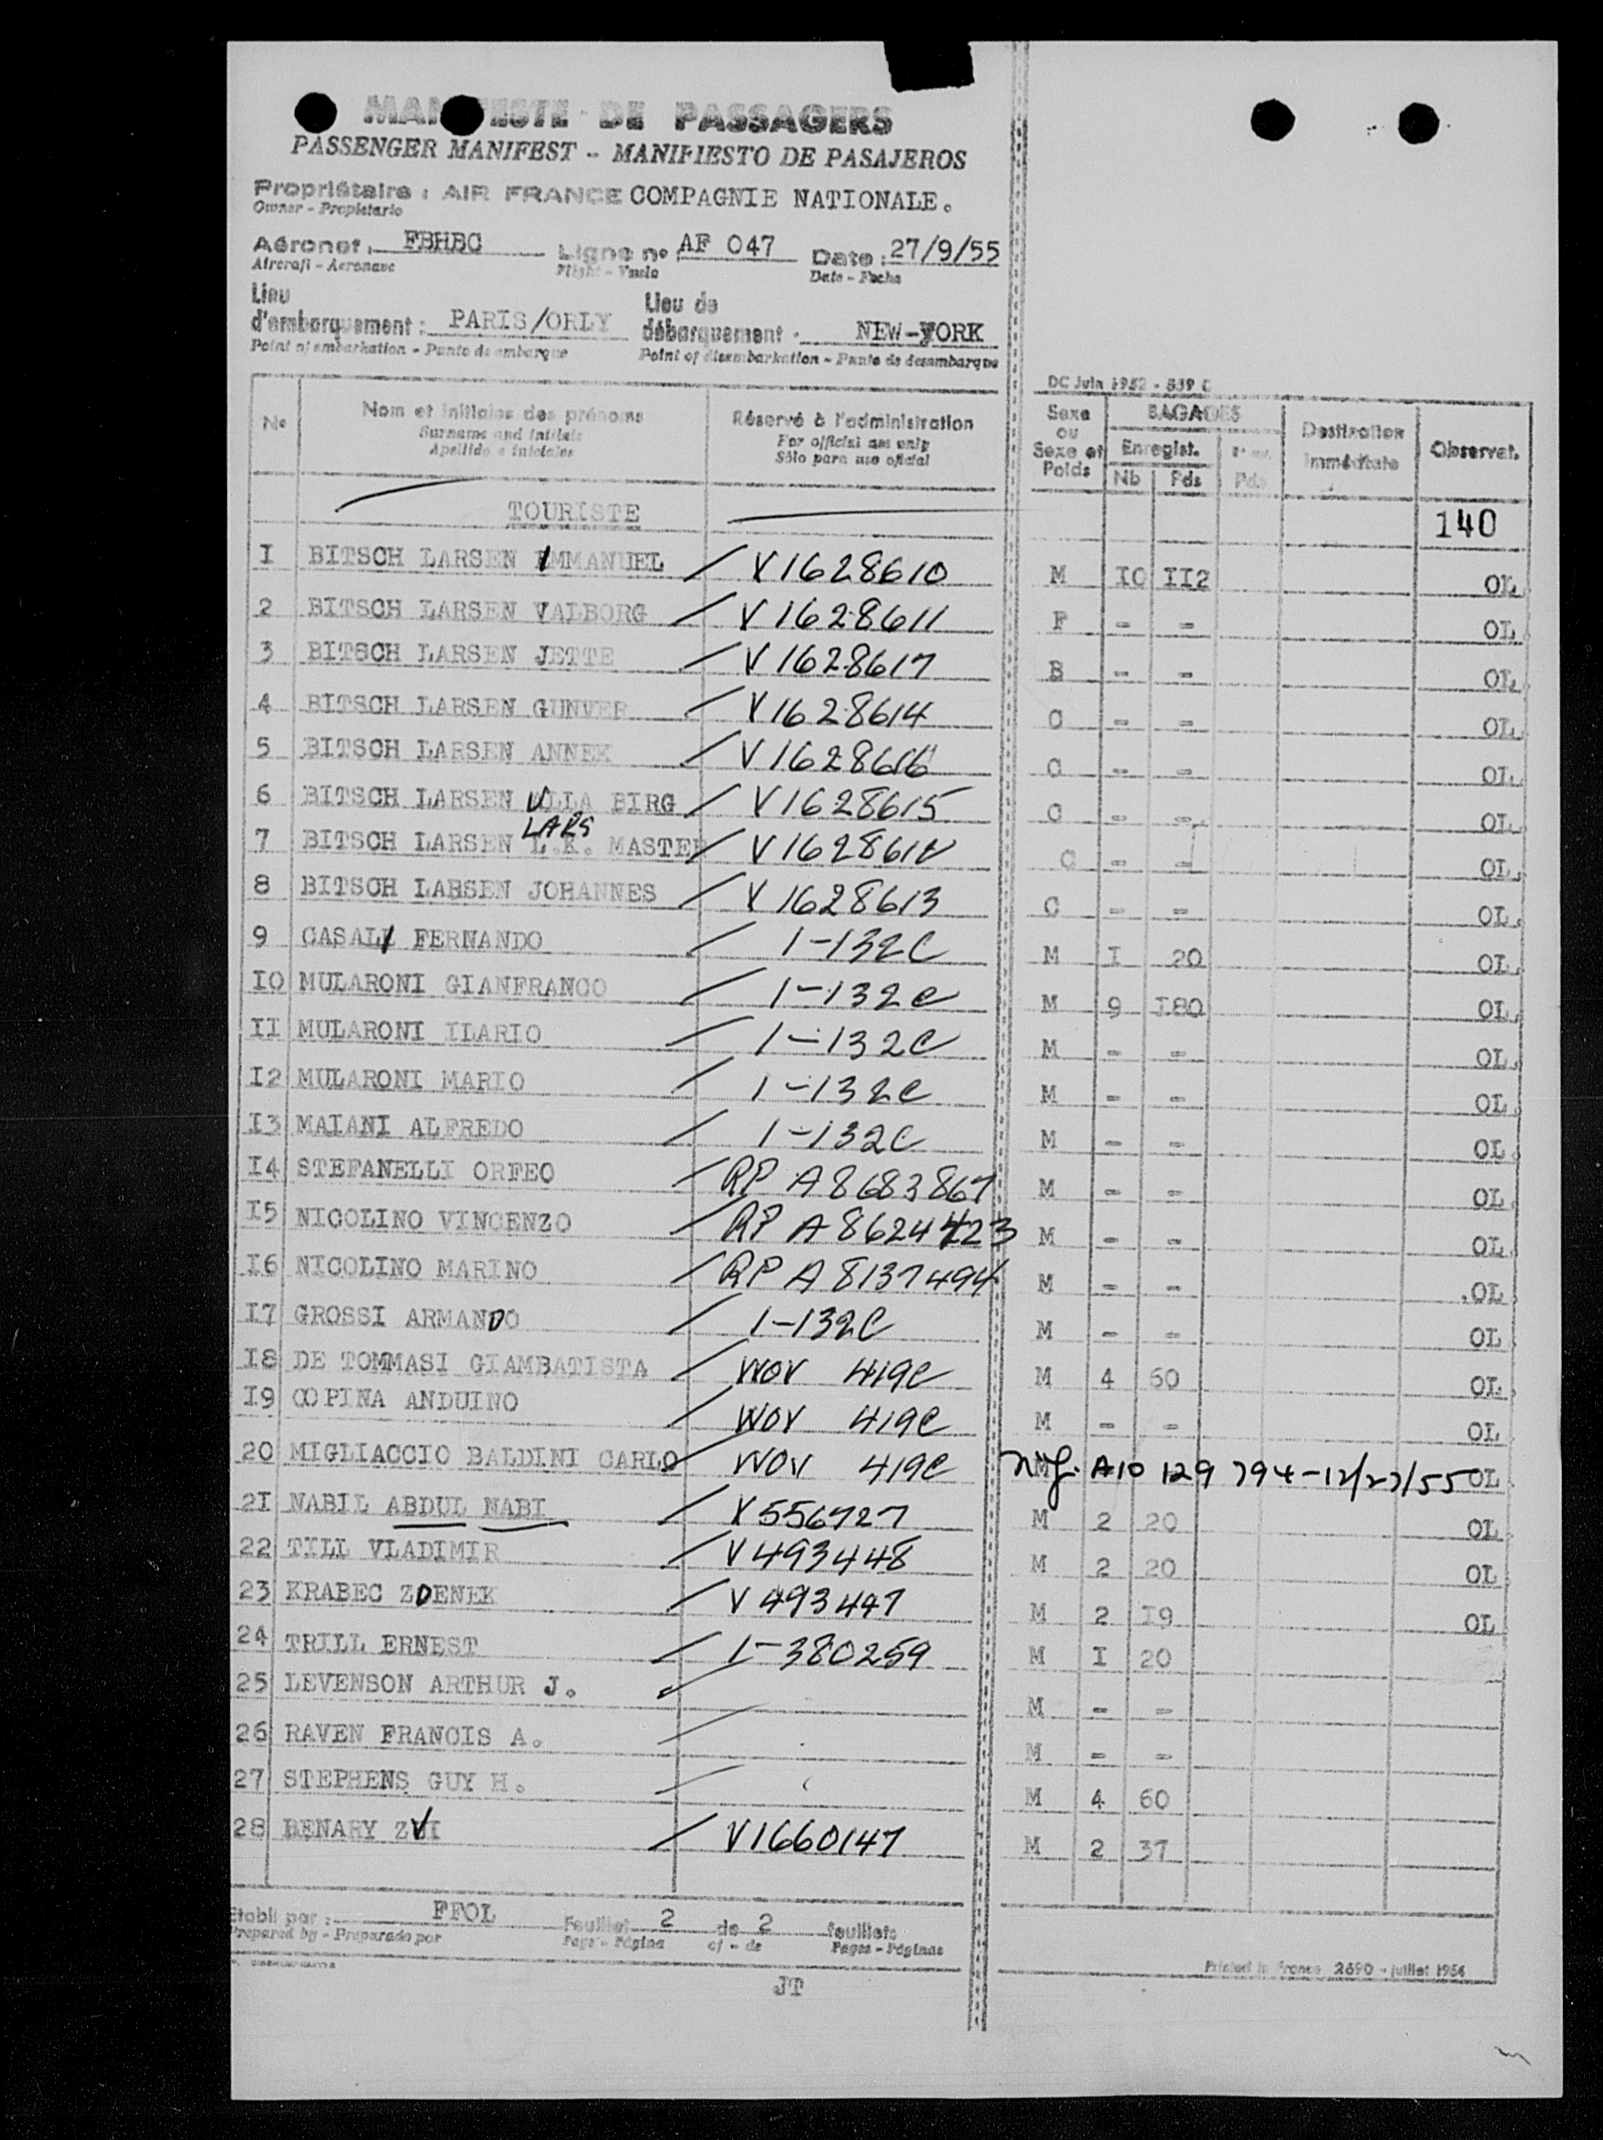 MANIFESTE DE PASSAGERS
PASSENGER MANIFEST - MANIFIESTO DE PASAJEROS
Propriétaire : AIR FRANCE COMPAGNIE NATIONALE.
Owner - Propietario
Aéronef : FBHBC Ligne nº AF 047 Date : 27/9/55
Aircraft - Aeronave Flight - Vuelo Date - Fecha
Lieu d'embarquement : PARIS/ORLY Lieu de débarquement : NEW-YORK
Point of embarkation - Punto de embarque Point of disembarkation - Punto de desembarque
DC Juin 1952 - 839 C
Nº Nom et initiales des prénoms Réservé à l'administration Sexe ou Sexe et Poids BAGAGES Destination immédiate Observat.
Surname and initials For official use only Enregist.
Apellido e iniciales Sólo para uso oficial Nb Pds Pds
TOURISTE 140
I BITSCH LARSEN EMMANUEL V1628610 M IO II2 OL
2 BITSCH LARSEN VALBORG V1628611 F - - OL
3 BITSCH LARSEN JETTE V1628617 B - - OL
4 BITSCH LARSEN GUNVER V1628614 C - - OL
5 BITSCH LARSEN ANNEK V1628616 C - - OL
6 BITSCH LARSEN ULLA BIRG V1628615 C - - OL
LARS
7 BITSCH LARSEN L.K. MASTER V1628612 C - - OL
8 BITSCH LARSEN JOHANNES V1628613 C - - OL
9 CASALI FERNANDO 1-132C M I 20 OL
IO MULARONI GIANFRANCO 1-132C M 9 I80 OL
II MULARONI ILARIO 1-132C M - - OL
I2 MULARONI MARIO 1-132C M - - OL
I3 MAIANI ALFREDO 1-132C M - - OL
I4 STEFANELLI ORFEO RP A8683867 M - - OL
I5 NICOLINO VINCENZO RP A8624423 M - - OL
I6 NICOLINO MARINO RP A8137494 M - - OL
I7 GROSSI ARMANDO 1-132C M - - OL
I8 DE TOMMASI GIAMBATISTA WOV 419C M 4 60 OL
I9 COPINA ANDUINO WOV 419C M - - OL
20 MIGLIACCIO BALDINI CARLO WOV 419C A10 129 794-12/27/55 OL
2I NABIL ABDUL NABI V556727 M 2 20 OL
22 TILL VLADIMIR V493448 M 2 20 OL
23 KRABEC ZDENEK V493447 M 2 I9 OL
24 TRILL ERNEST I-380259 M I 20
25 LEVENSON ARTHUR J. M - -
26 RAVEN FRANCIS A. M - -
27 STEPHENS GUY H. M 4 60
28 BENARY ZVI V1660147 M 2 37
Etabli par : FFOL Feuillet 2 de 2 feuillets
Prepared by - Preparado por Page - Página of - de Pages - Páginas
Printed in France 2690 - juillet 1954
JT